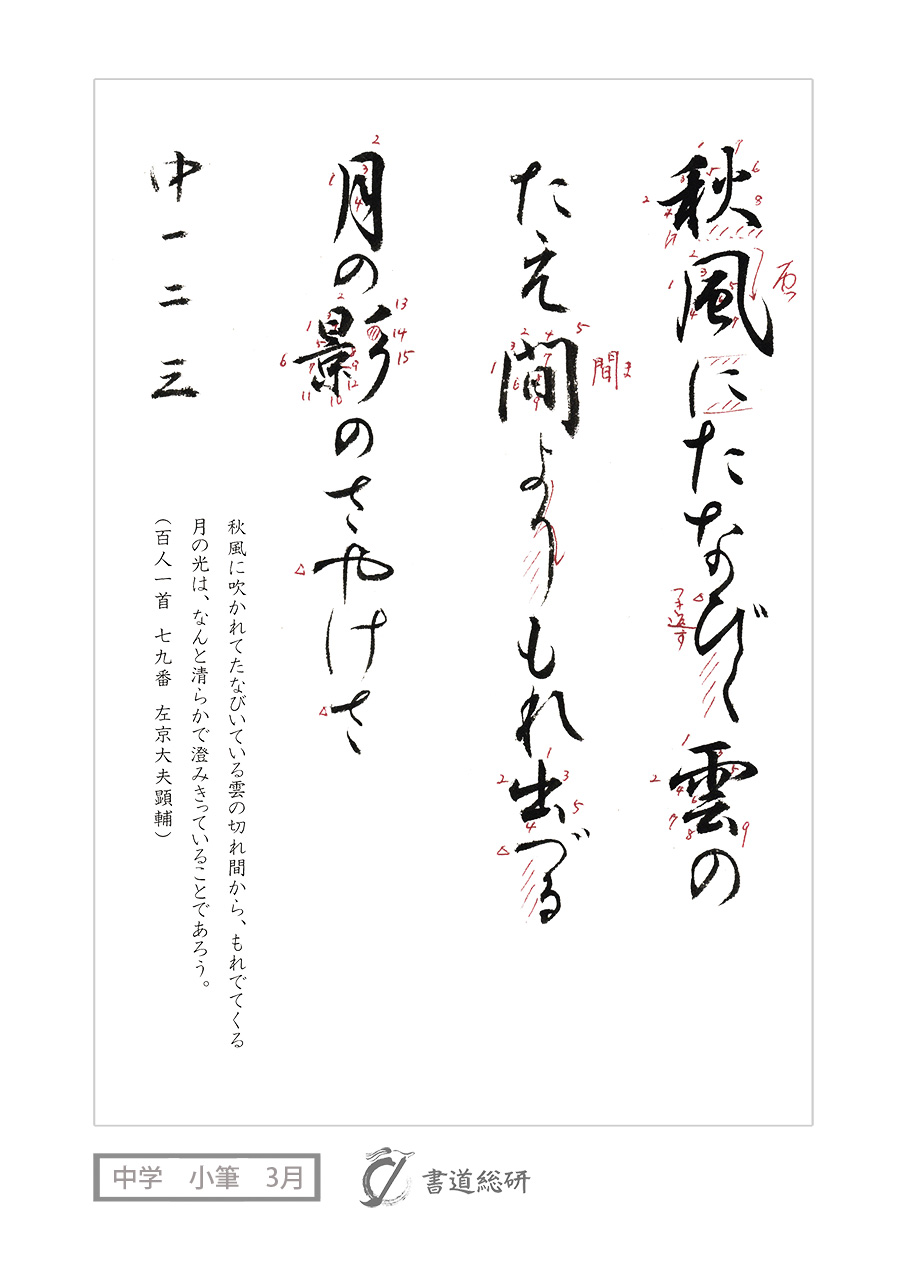 秋風にたなびく雲の
たえ間よりもれ出づる
月の影のさやけさ
中一二三
間ま
つき返す
秋風に吹かれてたなびいている雲の切れ間から、もれでてくる
月の光は、なんと清らかで澄みきっていることであろう。
(百人一首 七九番 左京大夫顕輔)
中学 小筆 3月
書道総研